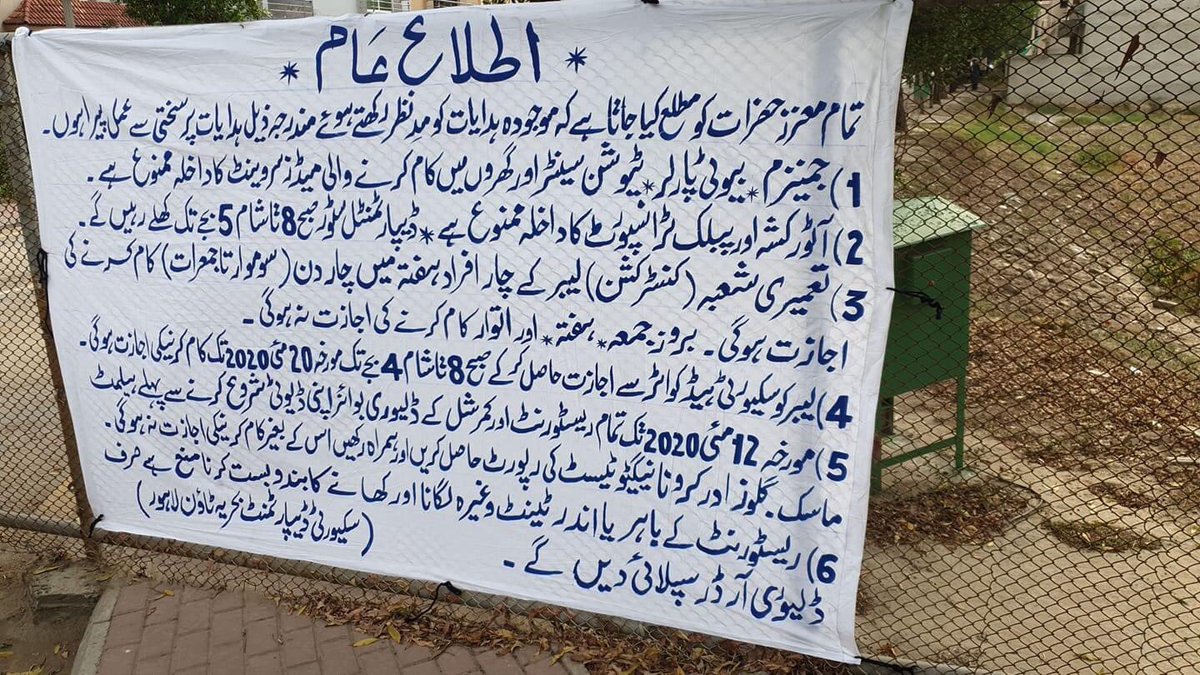 * اطلاع عام *
تمام معزز حضرات کو مطلع کیا جاتا ہے کہ موجودہ ہدایات کو مدنظر رکھتے ہوئے مندرجہ ذیل ہدایات پر سختی سے عمل پیرا ہوں۔
1) جمنیزم * بیوٹی پارلر * ٹیوشن سینٹر اور گھروں میں کام کرنے والی میڈز سروینٹ کا داخلہ ممنوع ہے۔
2) آٹو رکشہ اور پبلک ٹرانسپورٹ کا داخلہ ممنوع ہے * ڈیپارٹمنٹل سٹور صبح 8 تا شام 5 بجے تک کھلے رہیں گے۔
3) تعمیری شعبہ (کنسٹرکشن) لیبر کے چار افراد ہفتہ میں چار دن (سوموار تا جمعرات) کام کرنے کی
اجازت ہوگی۔ بروز جمعہ * ہفتہ * اور اتوار کام کرنے کی اجازت نہ ہوگی۔
4) لیبر کو سکیورٹی ہیڈ کواٹر سے اجازت حاصل کرکے صبح 8 تا شام 4 بجے تک مورخہ 20 مئی 2020 تک کام کرنیکی اجازت ہوگی۔
5) مورخہ 12 مئی 2020 تک تمام ریسٹورنٹ اور کمرشل کے ڈلیوری بوائز اپنی ڈیوٹی شروع کرنے سے پہلے ہیلمٹ
ماسک۔ گلوز اور کرونا نیگیٹو ٹیسٹ کی رپورٹ حاصل کریں اور ہمراہ رکھیں اس کے بغیر کام کرنیکی اجازت نہ ہوگی۔
6) ریسٹورنٹ کے باہر یا اندر ٹینٹ وغیرہ لگانا اور کھانے کا بندوبست کرنا منع ہے صرف
ڈلیوری آرڈر سپلائی دیں گے۔
(سکیورٹی ڈیپارٹمنٹ بحریہ ٹاؤن لاہور)